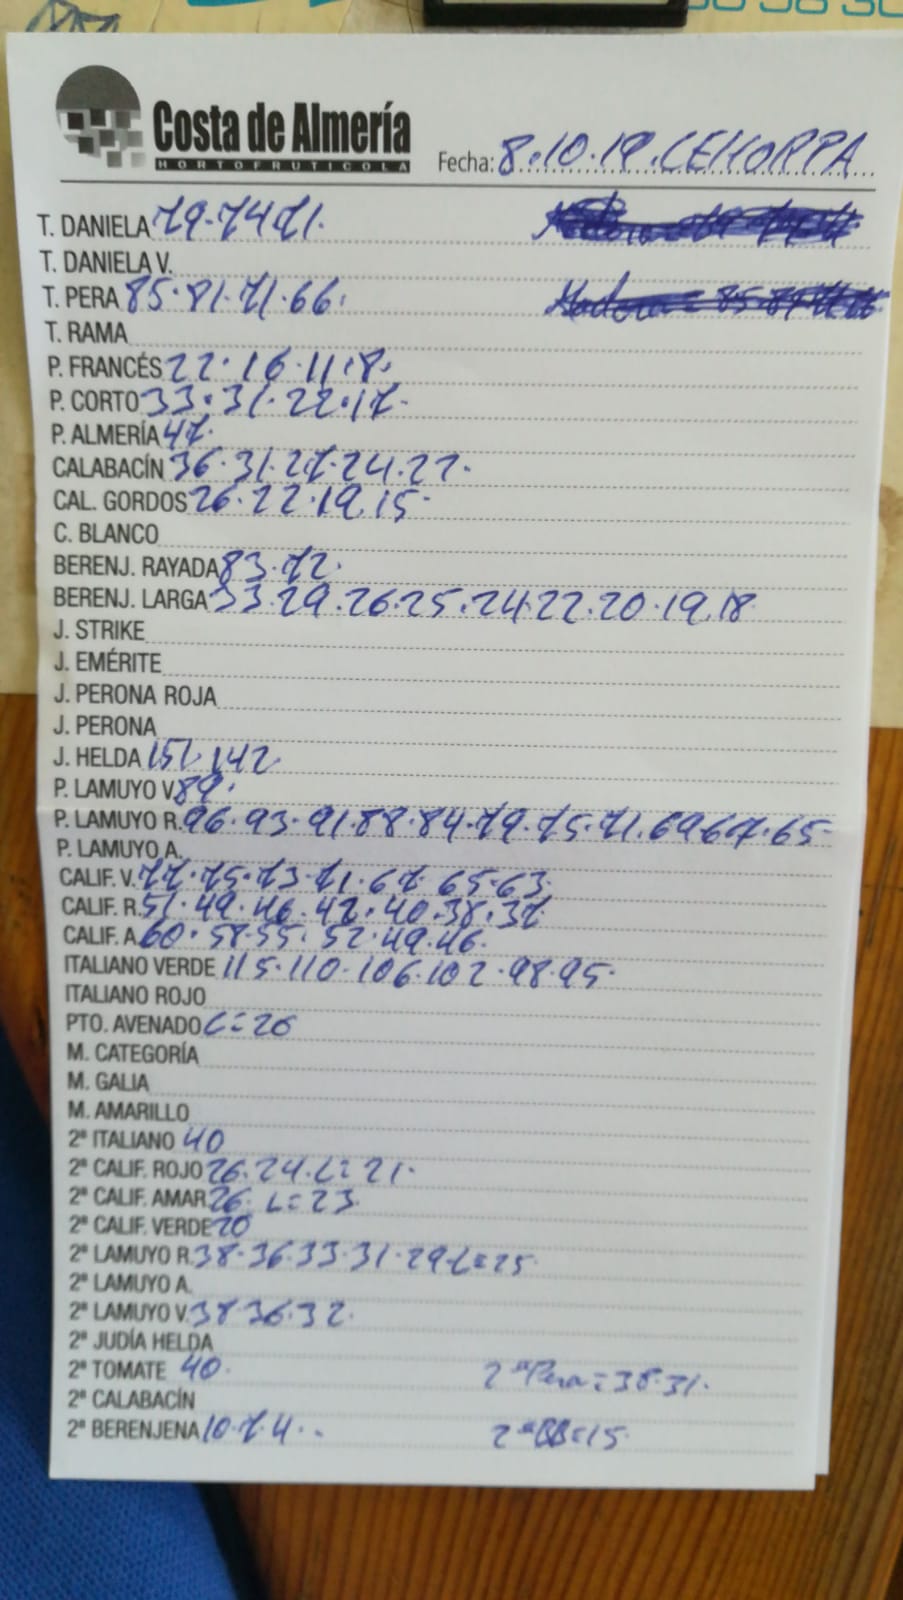 Costa de Almería
HORTOFRUTICOLA
Fecha: 8.10.19. CEHORPA
T. DANIELA 79.74 71.
T. DANIELA V.
T. PERA 85.81.71.66.
T. RAMA
P. FRANCÉS 22.16.11.8.
P. CORTO 33.31.22.17.
P. ALMERÍA 47.
CALABACÍN 36.31.27.24.22.
CAL. GORDOS 26.22.19.15.
C. BLANCO
BERENJ. RAYADA 83.72.
BERENJ. LARGA 33.29.26.25.24.22.20.19.18
J. STRIKE
J. EMÉRITE
J. PERONA ROJA
J. PERONA
J. HELDA 151.142
P. LAMUYO V. 89.
P. LAMUYO R. 96.93.91.88.84.79.75.71.69.67.65
P. LAMUYO A.
CALIF. V. 77.75.73.71.67.65.63.
CALIF. R. 51.49.46.42.40.38.37
CALIF. A. 60.58.55.52.49.46.
ITALIANO VERDE 115.110.106.102.98.95.
ITALIANO ROJO
PTO. AVENADO L=26
M. CATEGORÍA
M. GALIA
M. AMARILLO
2ª ITALIANO 40
2ª CALIF. ROJO 26.24.L=21.
2ª CALIF. AMAR 26. L=23
2ª CALIF. VERDE 20
2ª LAMUYO R. 38.36.33.31.29.L=25
2ª LAMUYO A.
2ª LAMUYO V. 38 36.32.
2ª JUDÍA HELDA
2ª TOMATE 40. 2ª Pera=38.31.
2ª CALABACÍN
2ª BERENJENA 10.7.4.. 2ª BB=15